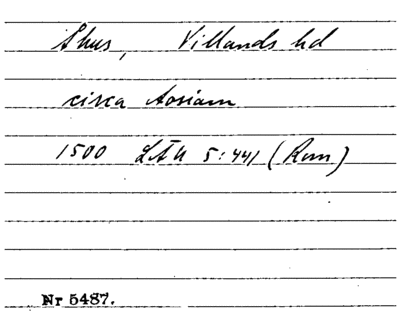 Åhus, Villands hd
circa Aosiam
1500 LÄU 5:441 (Rom)
Nr 5487.